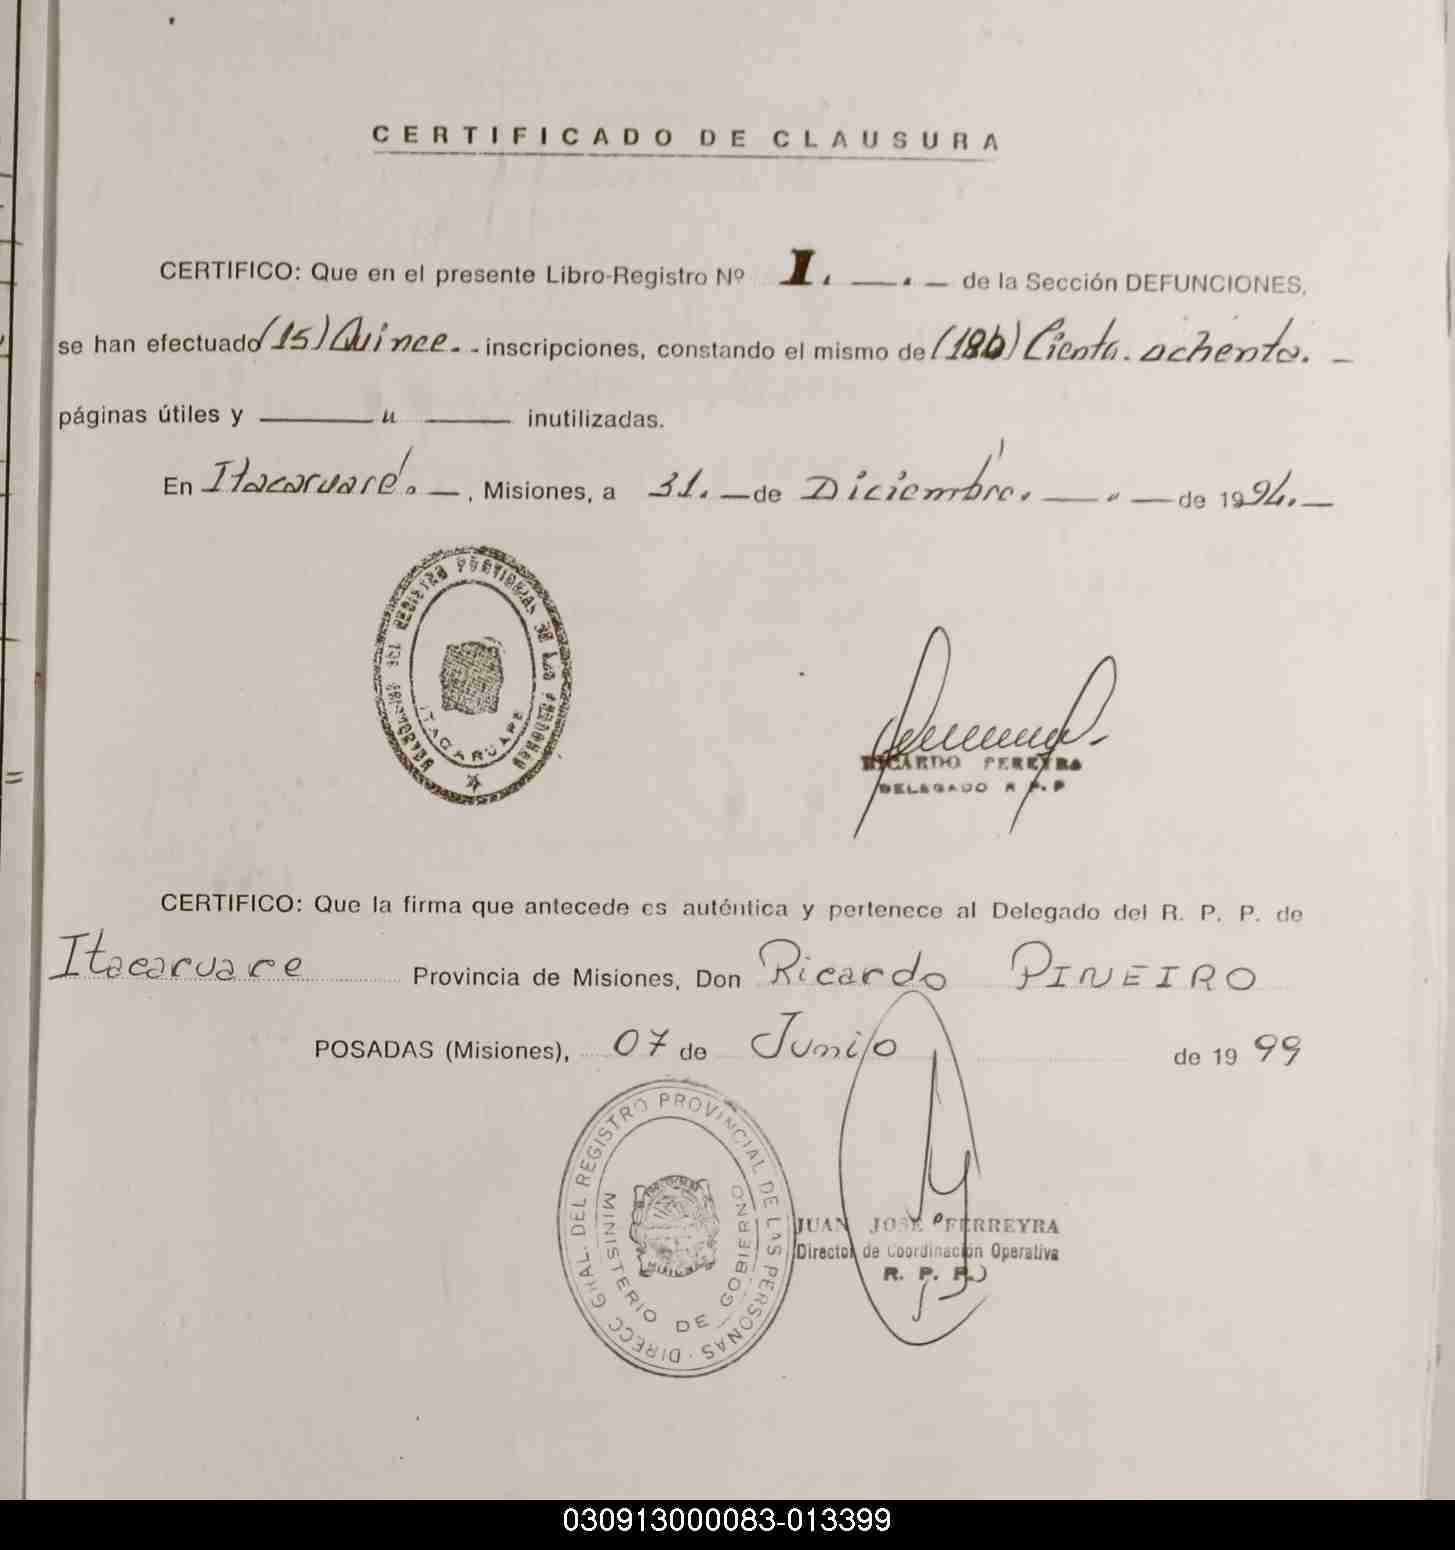 CERTIFICADO DE CLAUSURA
CERTIFICO: Que en el presente Libro-Registro Nº I. —.— de la Sección DEFUNCIONES,
se han efectuado (15) Quince.- - inscripciones, constando el mismo de (180) Ciento. ochenta. —
páginas útiles y ——— " ——— inutilizadas.
En Itacaruaré. — , Misiones, a 31. — de Diciembre. — " — de 1994. —
REGISTRO PROVINCIAL DE LAS PERSONAS
ITACARUARE
RICARDO PEREYRA
DELEGADO R P. P
CERTIFICO: Que la firma que antecede es auténtica y pertenece al Delegado del R. P. P. de
Itacaruare Provincia de Misiones, Don Ricardo PINEIRO
POSADAS (Misiones), 07 de Junio de 1999
DIRECC GRAL. DEL REGISTRO PROVINCIAL DE LAS PERSONAS
MINISTERIO DE GOBIERNO
JUAN JOSE FERREYRA
Director de Coordinación Operativa
R. P. P.
030913000083-013399